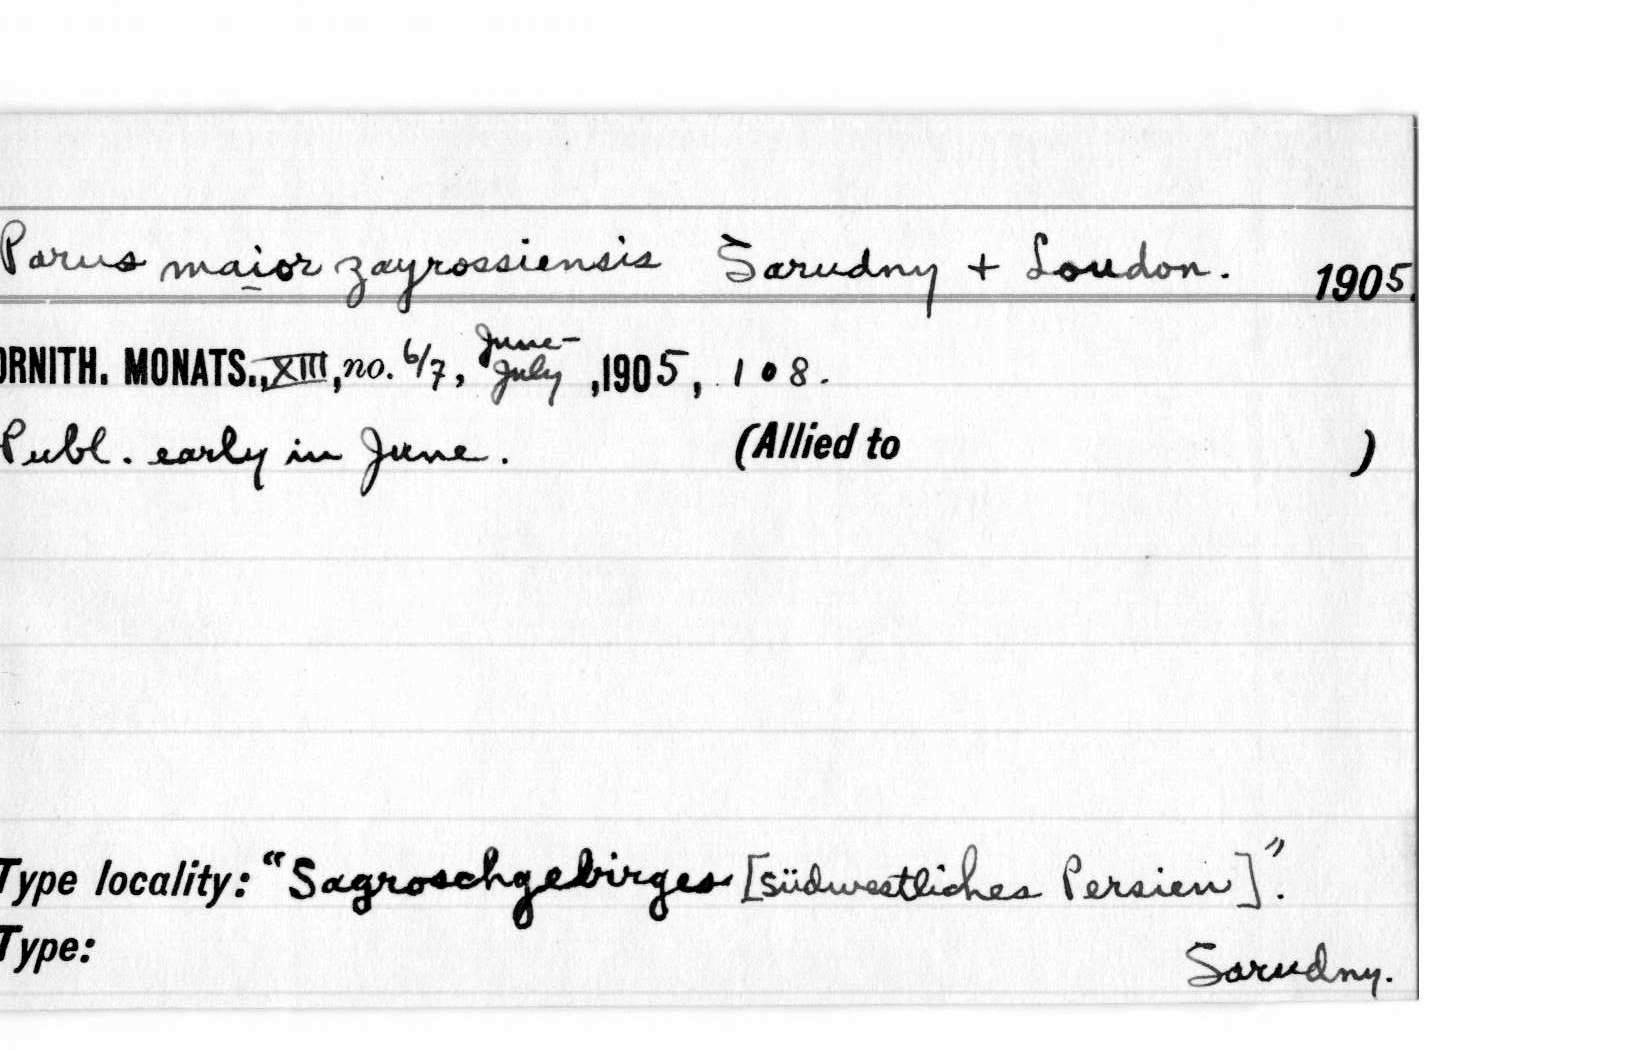 Parus major zagrossiensis Sarudny + Loudon. 1905.
ORNITH. MONATS., XIII, no. 6/7, June-July, 1905, 108.
Publ. early in June. (Allied to )
Type locality: "Sagroschgebirges [südwestliches Persien]".
Type: Sarudny.